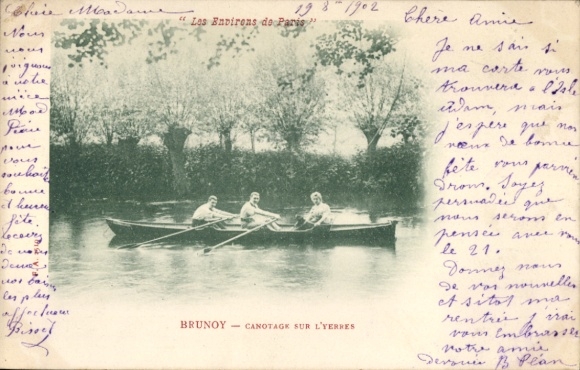 "Les Environs de Paris"
19 8bre 1902
Chère Madame
Nous
nous
joignons
à notre
nièce Mad
Pléan
pour
vous
souhaiter
bonne
et heureuse
fête.
recevez
de nous
deux
nos baisers
les plus
affectueux
Bissel
BRUNOY — CANOTAGE SUR L'YERRES
Chère Amie
Je ne sais si
ma carte vous
trouvera à l'Isle
Adam, mais
j'espère que nos
vœux de bonne
fête vous parvien
dront. Soyez
persuadée que
nous serons en
pensée avec vous
le 21.
Donnez nous
de vos nouvelles
et sitôt ma
rentrée j'irai
vous embrasser
votre amie
dévouée B Pléan